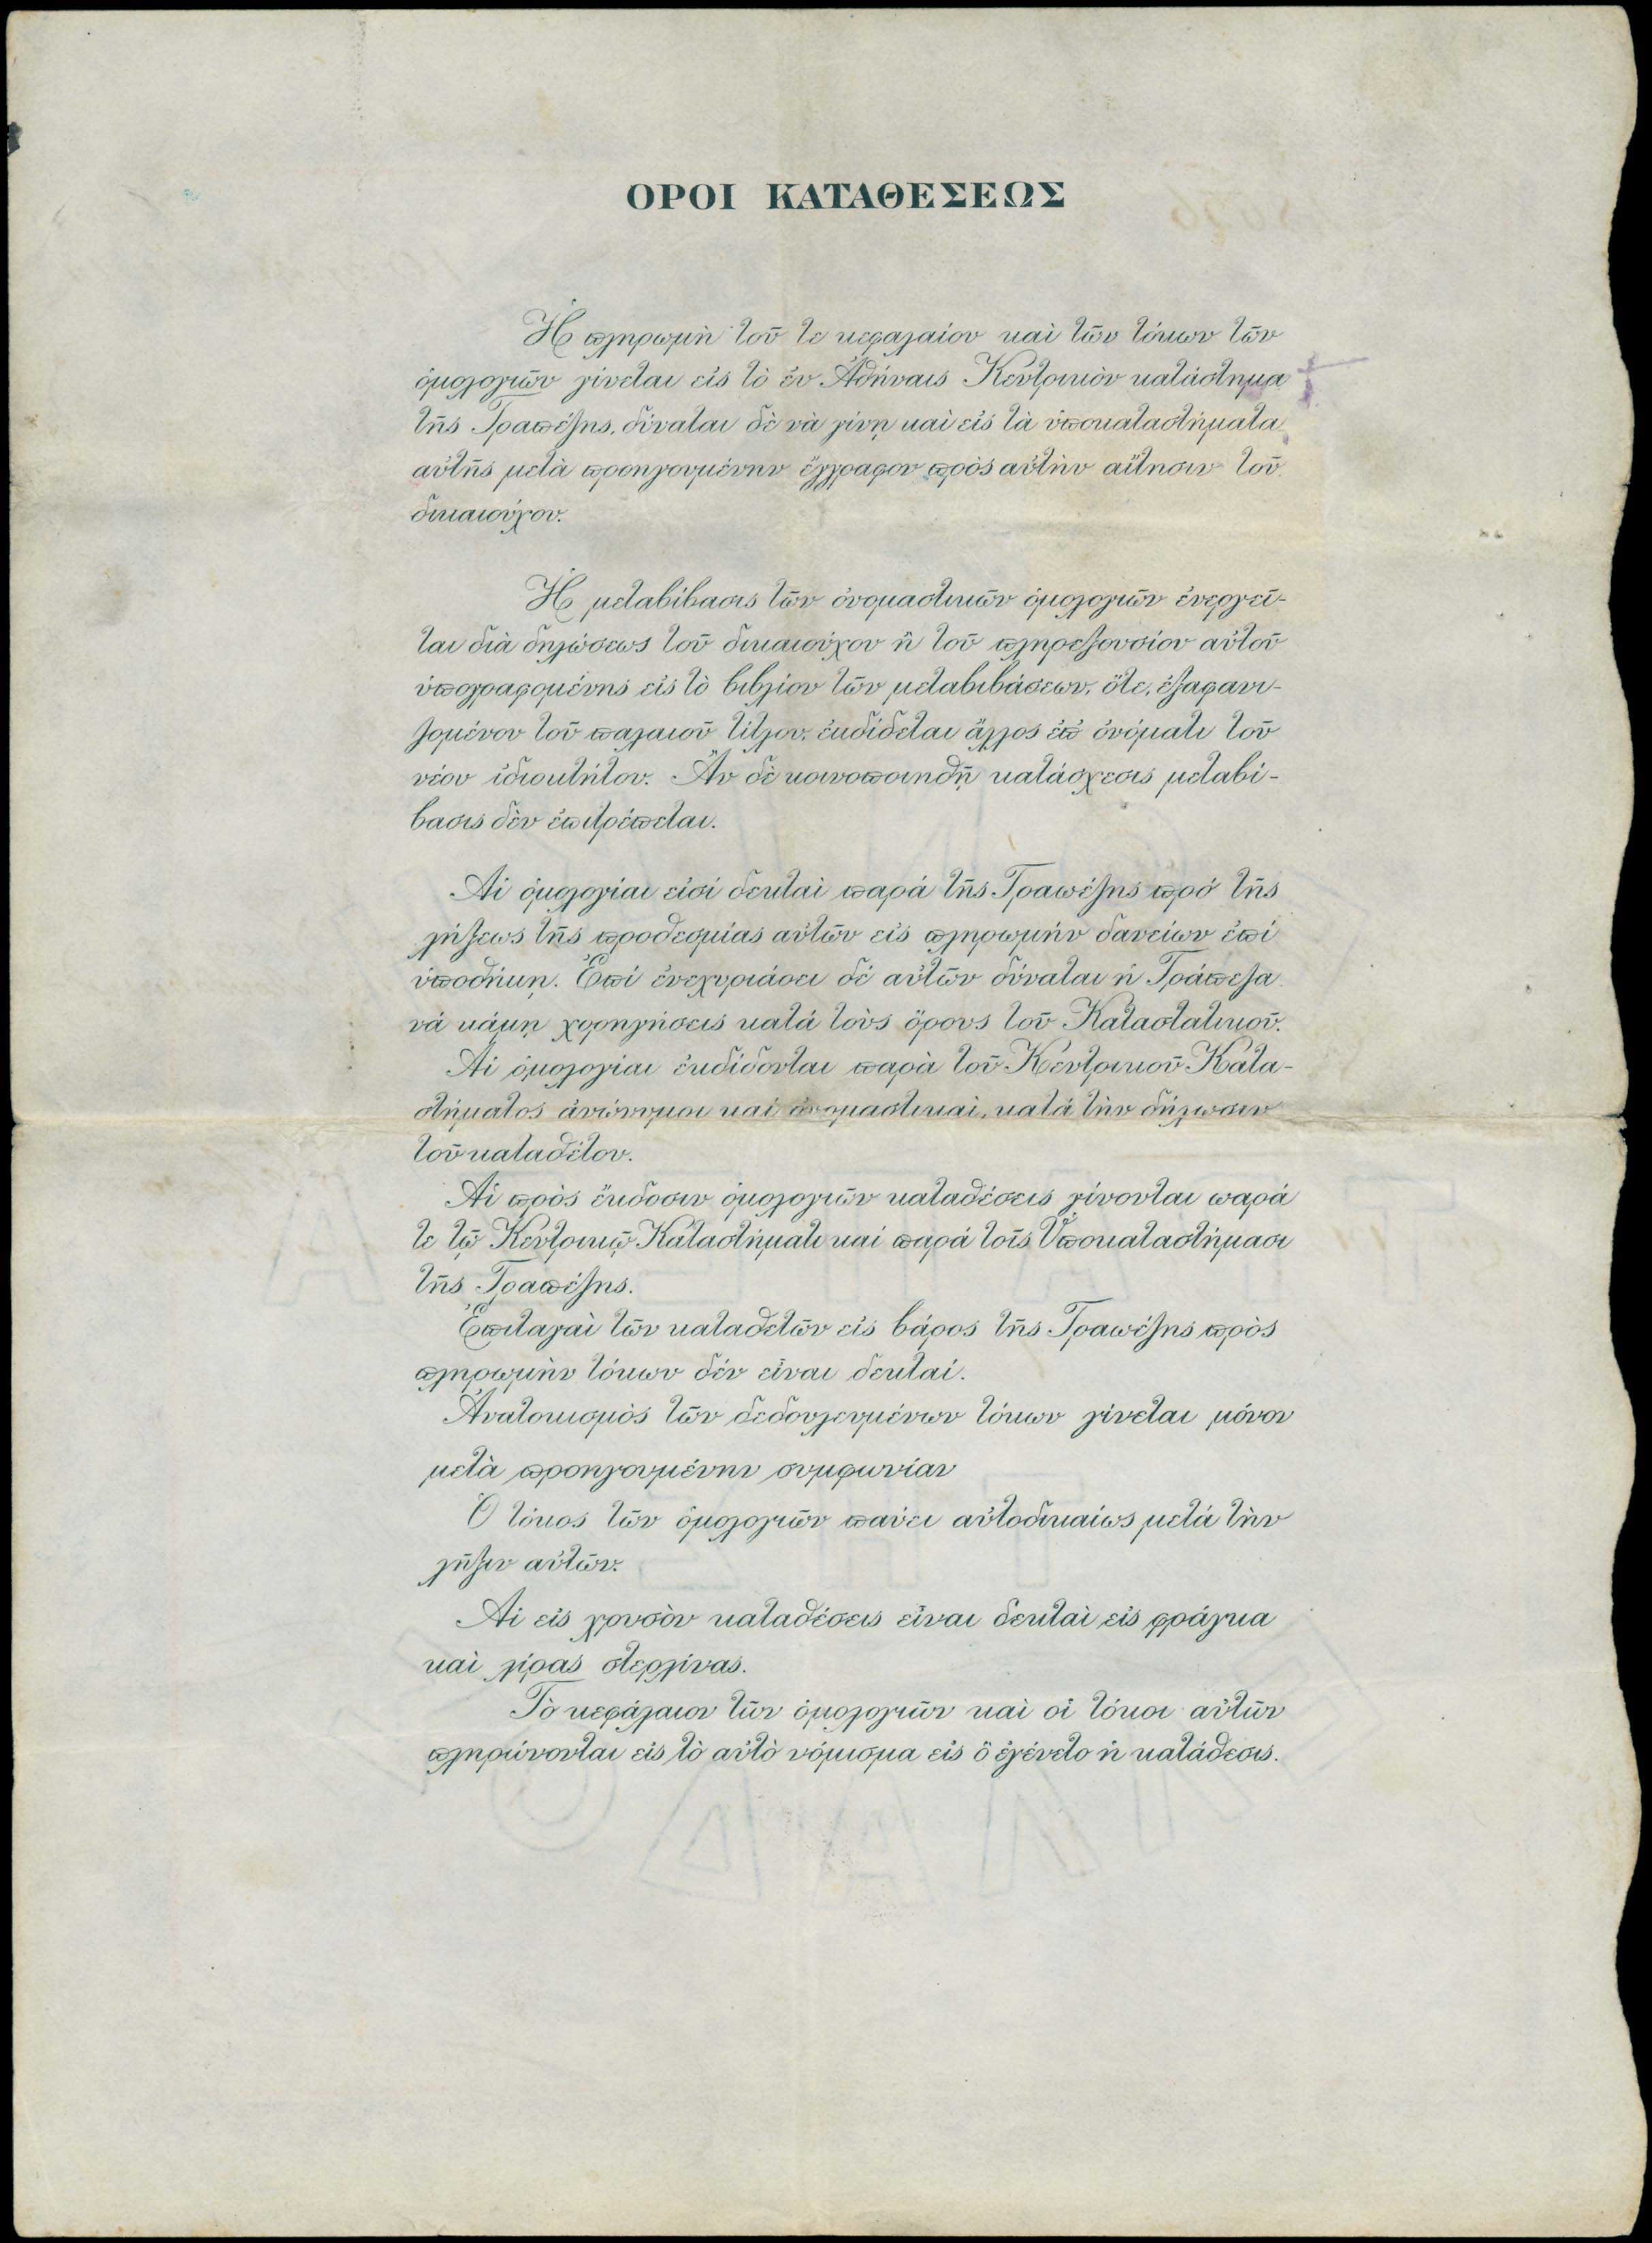 ΟΡΟΙ ΚΑΤΑΘΕΣΕΩΣ
Ἡ πληρωμὴ τοῦ τε κεφαλαίου καὶ τῶν τόκων τῶν
ὁμολογιῶν γίνεται εἰς τὸ ἐν Ἀθήναις Κεντρικὸν κατάστημα
τῆς Τραπέζης, δύναται δὲ νὰ γίνῃ καὶ εἰς τὰ ὑποκαταστήματα
αὐτῆς μετὰ προηγουμένην ἔγγραφον πρὸς αὐτὴν αἴτησιν τοῦ
δικαιούχου.
Ἡ μεταβίβασις τῶν ὀνομαστικῶν ὁμολογιῶν ἐνεργεῖ-
ται διὰ δηλώσεως τοῦ δικαιούχου ἢ τοῦ πληρεξουσίου αὐτοῦ
ὑπογραφομένης εἰς τὸ βιβλίον τῶν μεταβιβάσεων, ὅτε, ἐξαφανι-
ζομένου τοῦ παλαιοῦ τίτλου, ἐκδίδεται ἄλλος ἐπ' ὀνόματι τοῦ
νέου ἰδιοκτήτου. Ἂν δὲ κοινοποιηθῇ κατάσχεσις μεταβί-
βασις δὲν ἐπιτρέπεται.
Αἱ ὁμολογίαι εἰσί δεκταὶ παρά τῆς Τραπέζης πρό τῆς
λήξεως τῆς προθεσμίας αὐτῶν εἰς πληρωμήν δανείων ἐπί
ὑποθήκῃ. Ἐπί ἐνεχυριάσει δέ αὐτῶν δύναται ἡ Τράπεζα
νά κάμῃ χορηγήσεις κατά τοὺς ὅρους τοῦ Καταστατικοῦ.
Αἱ ὁμολογίαι ἐκδίδονται παρὰ τοῦ Κεντρικοῦ Κατα-
στήματος ἀνώνυμοι καί ὀνομαστικαὶ, κατά τὴν δήλωσιν
τοῦ καταθέτου.
Αἱ πρὸς ἔκδοσιν ὁμολογιῶν καταθέσεις γίνονται παρά
τε τῷ Κεντρικῷ Καταστήματι καί παρά τοῖς Ὑποκαταστήμασι
τῆς Τραπέζης.
Ἐπιταγαὶ τῶν καταθετῶν εἰς βάρος τῆς Τραπέζης πρὸς
πληρωμὴν τόκων δέν εἶναι δεκταί.
Ἀνατοκισμὸς τῶν δεδουλευμένων τόκων γίνεται μόνον
μετὰ προηγουμένην συμφωνίαν
Ὁ τόκος τῶν ὁμολογιῶν παύει αὐτοδικαίως μετά τὴν
λῆξιν αὐτῶν.
Αἱ εἰς χρυσὸν καταθέσεις εἶναι δεκταὶ εἰς φράγκα
καὶ λίρας στερλίνας.
Τὸ κεφάλαιον τῶν ὁμολογιῶν καὶ οἱ τόκοι αὐτῶν
πληρώνονται εἰς τὸ αὐτὸ νόμισμα εἰς ὃ ἐγένετο ἡ κατάθεσις.